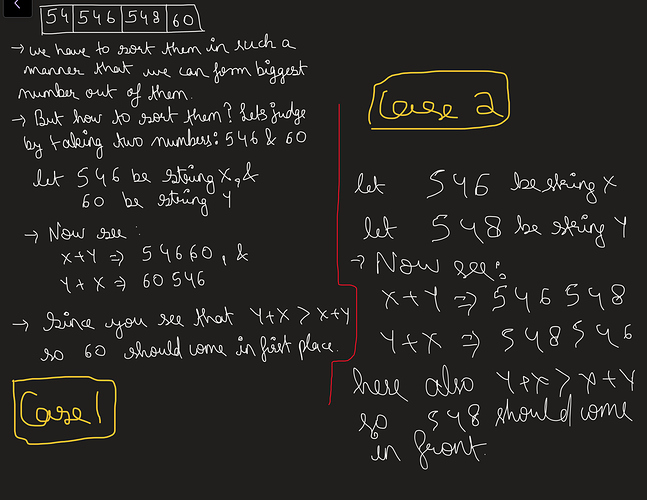 54 546 548 60
→ we have to sort them in such a
manner that we can form biggest
number out of them.
→ But how to sort them? Lets judge
by taking two numbers: 546 & 60
let 546 be string X, &
60 be string Y
→ Now see:
X+Y => 54660, &
Y+X => 60546
→ Since you see that Y+X > X+Y
so 60 should come in first place.
Case 1
Case 2
let 546 be string X
let 548 be string Y
→ Now see:
X+Y => 546548
Y+X => 548546
here also Y+X > X+Y
so 548 should come
in front.